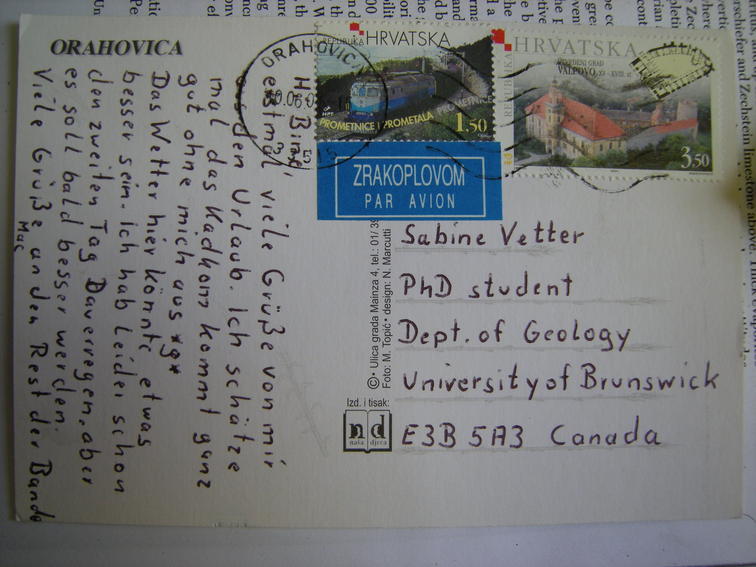 ORAHOVICA
viele Grüße von mir
Urlaub. Ich schätze
mal das Kadkom kommt ganz
gut ohne mich aus *g*
Das Wetter hier könnte etwas
besser sein. Ich hab leider schon
den zweiten Tag Dauerregen, aber
es soll bald besser werden.
Viele Grüße an den Rest der Bande
Mac
ORAHOVICA
REPUBLIKA HRVATSKA
PROMETNICE I PROMETALA
1.50
REPUBLIKA HRVATSKA
VALPOVO
3.50
ZRAKOPLOVOM
PAR AVION
Sabine Vetter
PhD student
Dept. of Geology
University of Brunswick
E3B 5A3 Canada
Ulica grada Mainza 4, tel.: 01/
Foto: M. Topić • design: N. Marcutti
Izd. i tisak:
nd
naša djeca